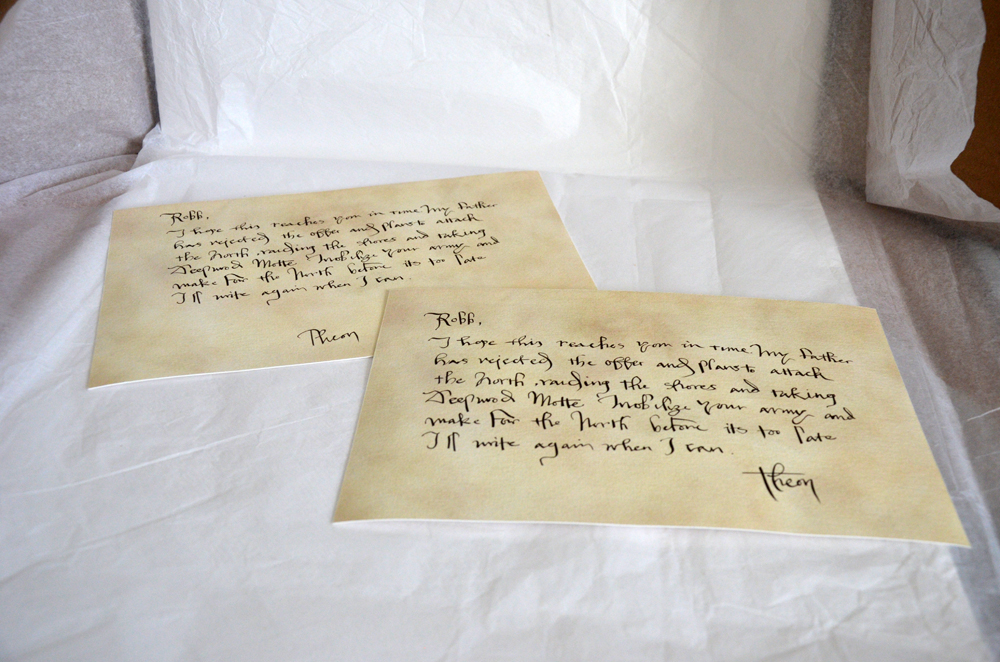 Robb,
I hope this reaches you in time. My Father
has rejected the offer and plans to attack
the North, raiding the shores and taking
Deepwood Motte. Mobilize your army and
make for the North before its too late
I'll write again when I can.
Theon
Robb,
I hope this reaches you in time. My Father
has rejected the offer and plans to attack
the North, raiding the shores and taking
Deepwood Motte. Mobilize your army and
make for the North before its too late
I'll write again when I can.
Theon